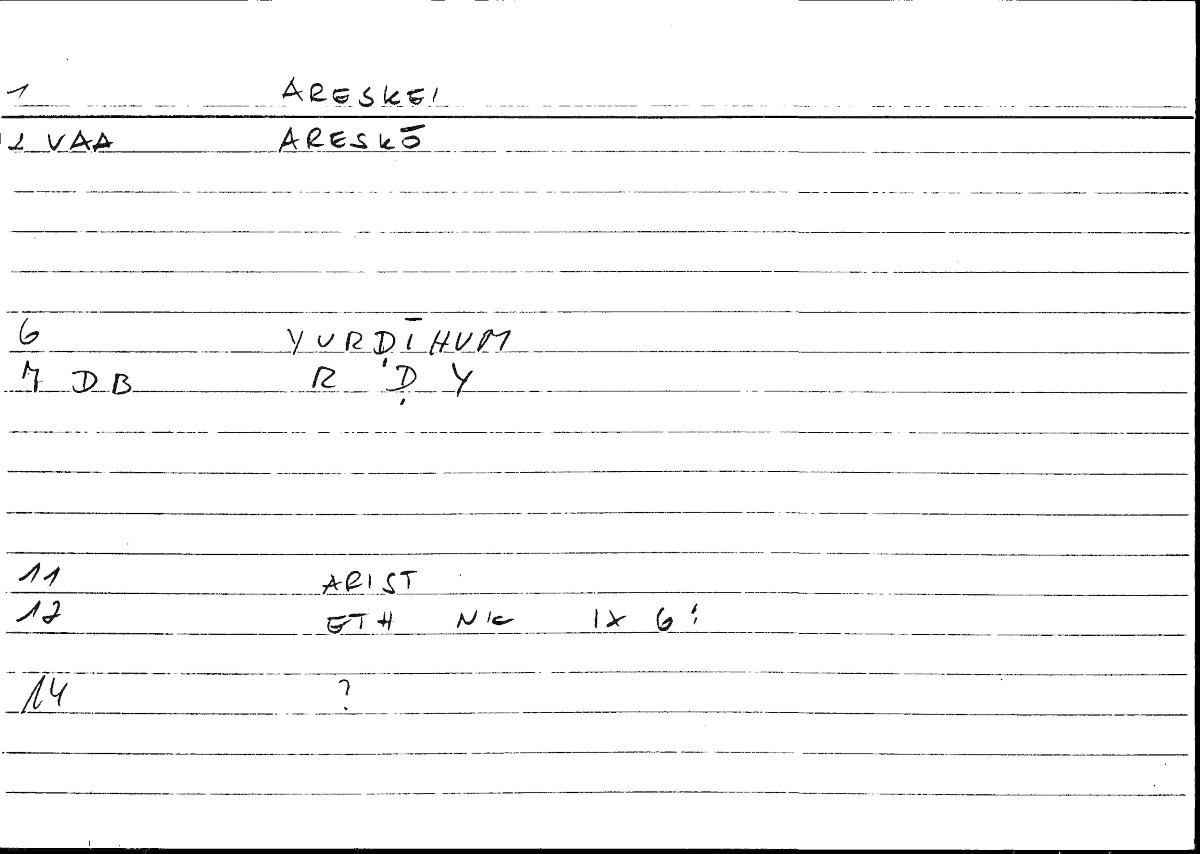 1 ARESKEI
2 VAA ARESKŌ
6 YURḌĪHUM
7 DB R Ḍ Y
11 ARIST
12 ETH NIC IX 6:
14 ?